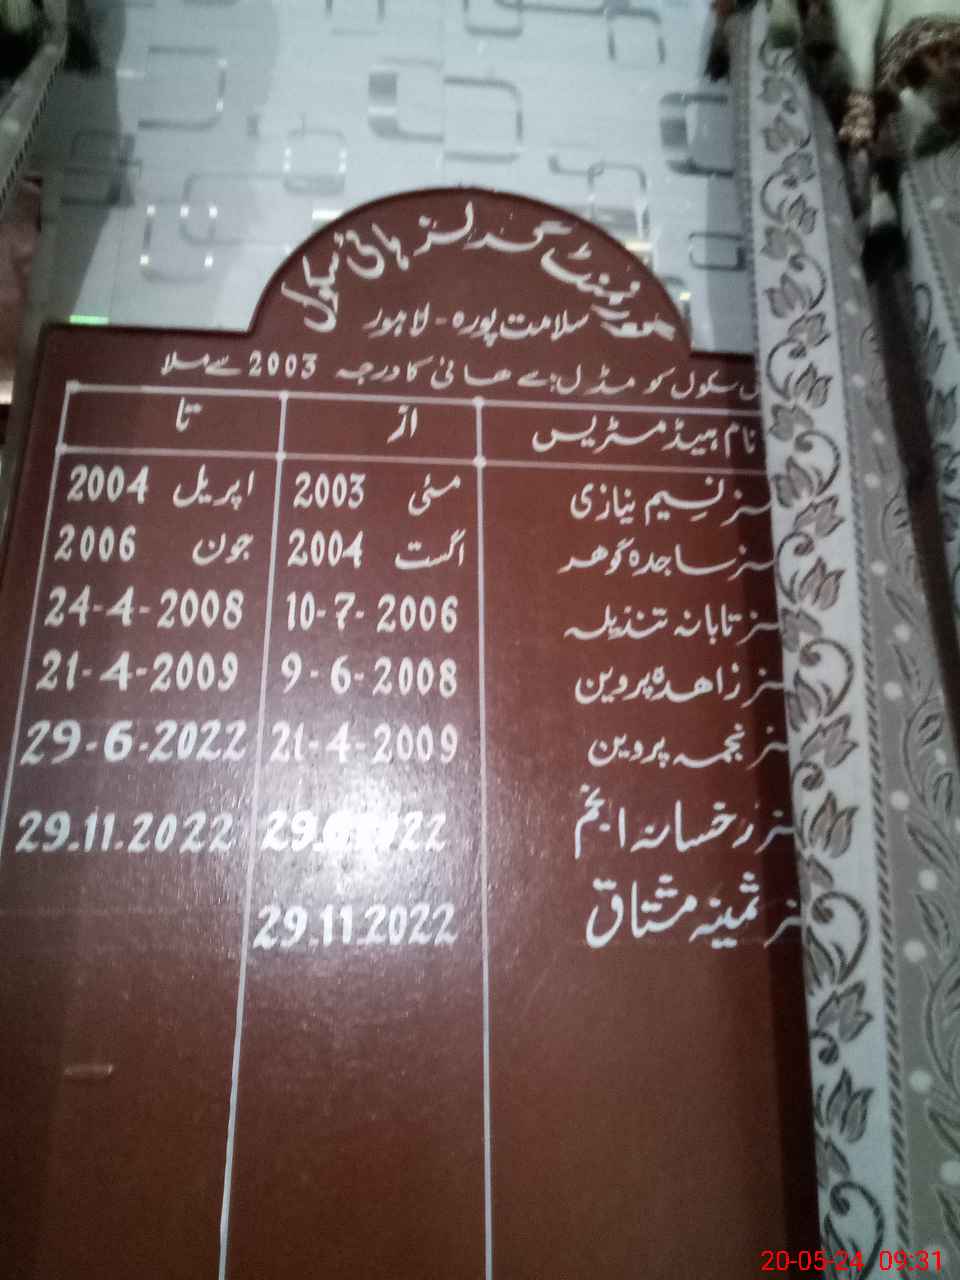 گورنمنٹ گرلز ہائی سکول
سلامت پورہ - لاہور
سکول کو مڈل سے ھائی کا درجہ 2003 سے ملا
نام ہیڈ مسٹریس از تا
مسز نسیم نیازی مئی 2003 اپریل 2004
مسز ساجدہ گوھر اگست 2004 جون 2006
مسز تابانہ تنذیلہ 10-7-2006 24-4-2008
مسز زاھدہ پروین 9-6-2008 21-4-2009
مسز نجمہ پروین 21-4-2009 29-6-2022
مسز رخسانہ انجم 29.11.2022
مسز ثمینہ مشتاق 29.11.2022
20-05-24 09:31